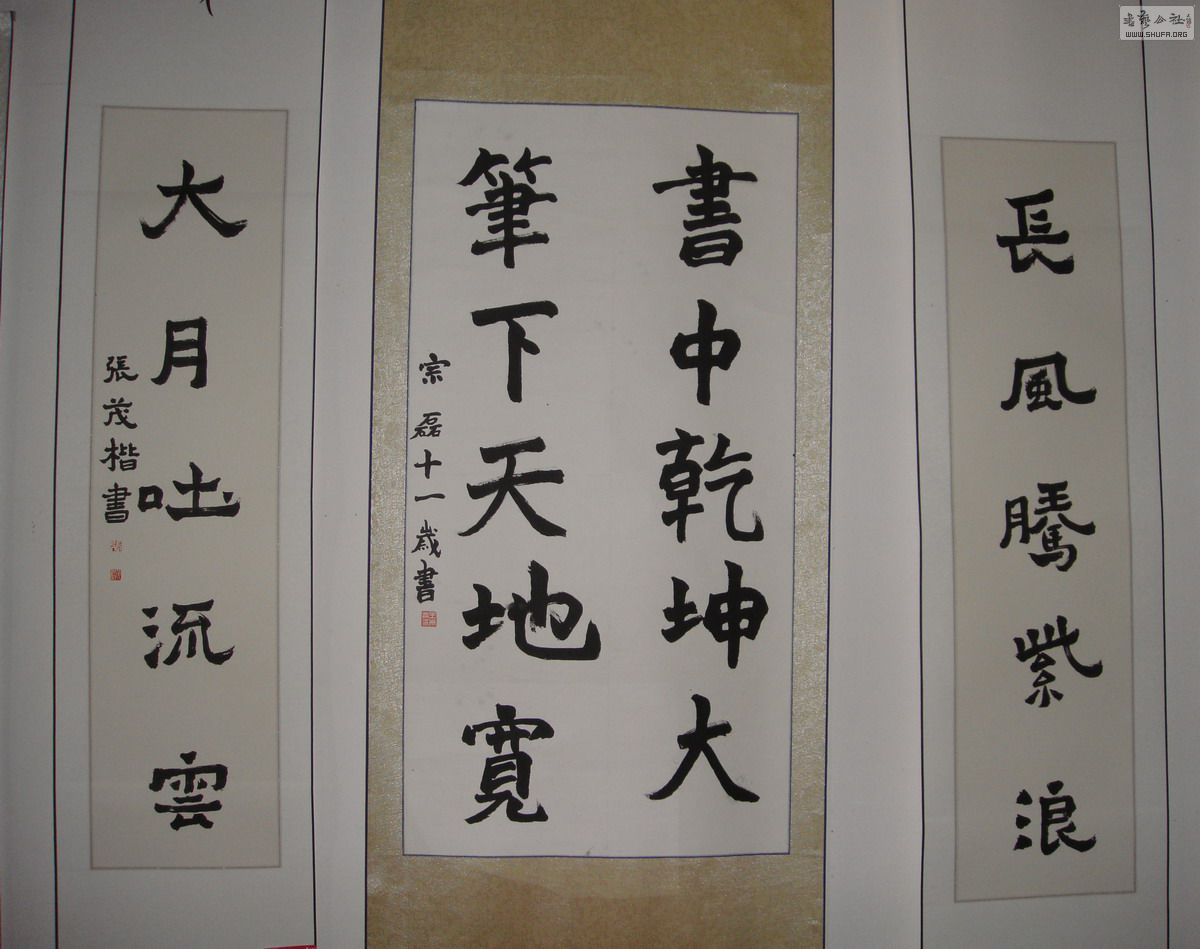 長風騰紫浪
書中乾坤大
筆下天地寬
宗磊十一歲書
大月吐流雲
張茂楷書
WWW.SHUFA.ORG